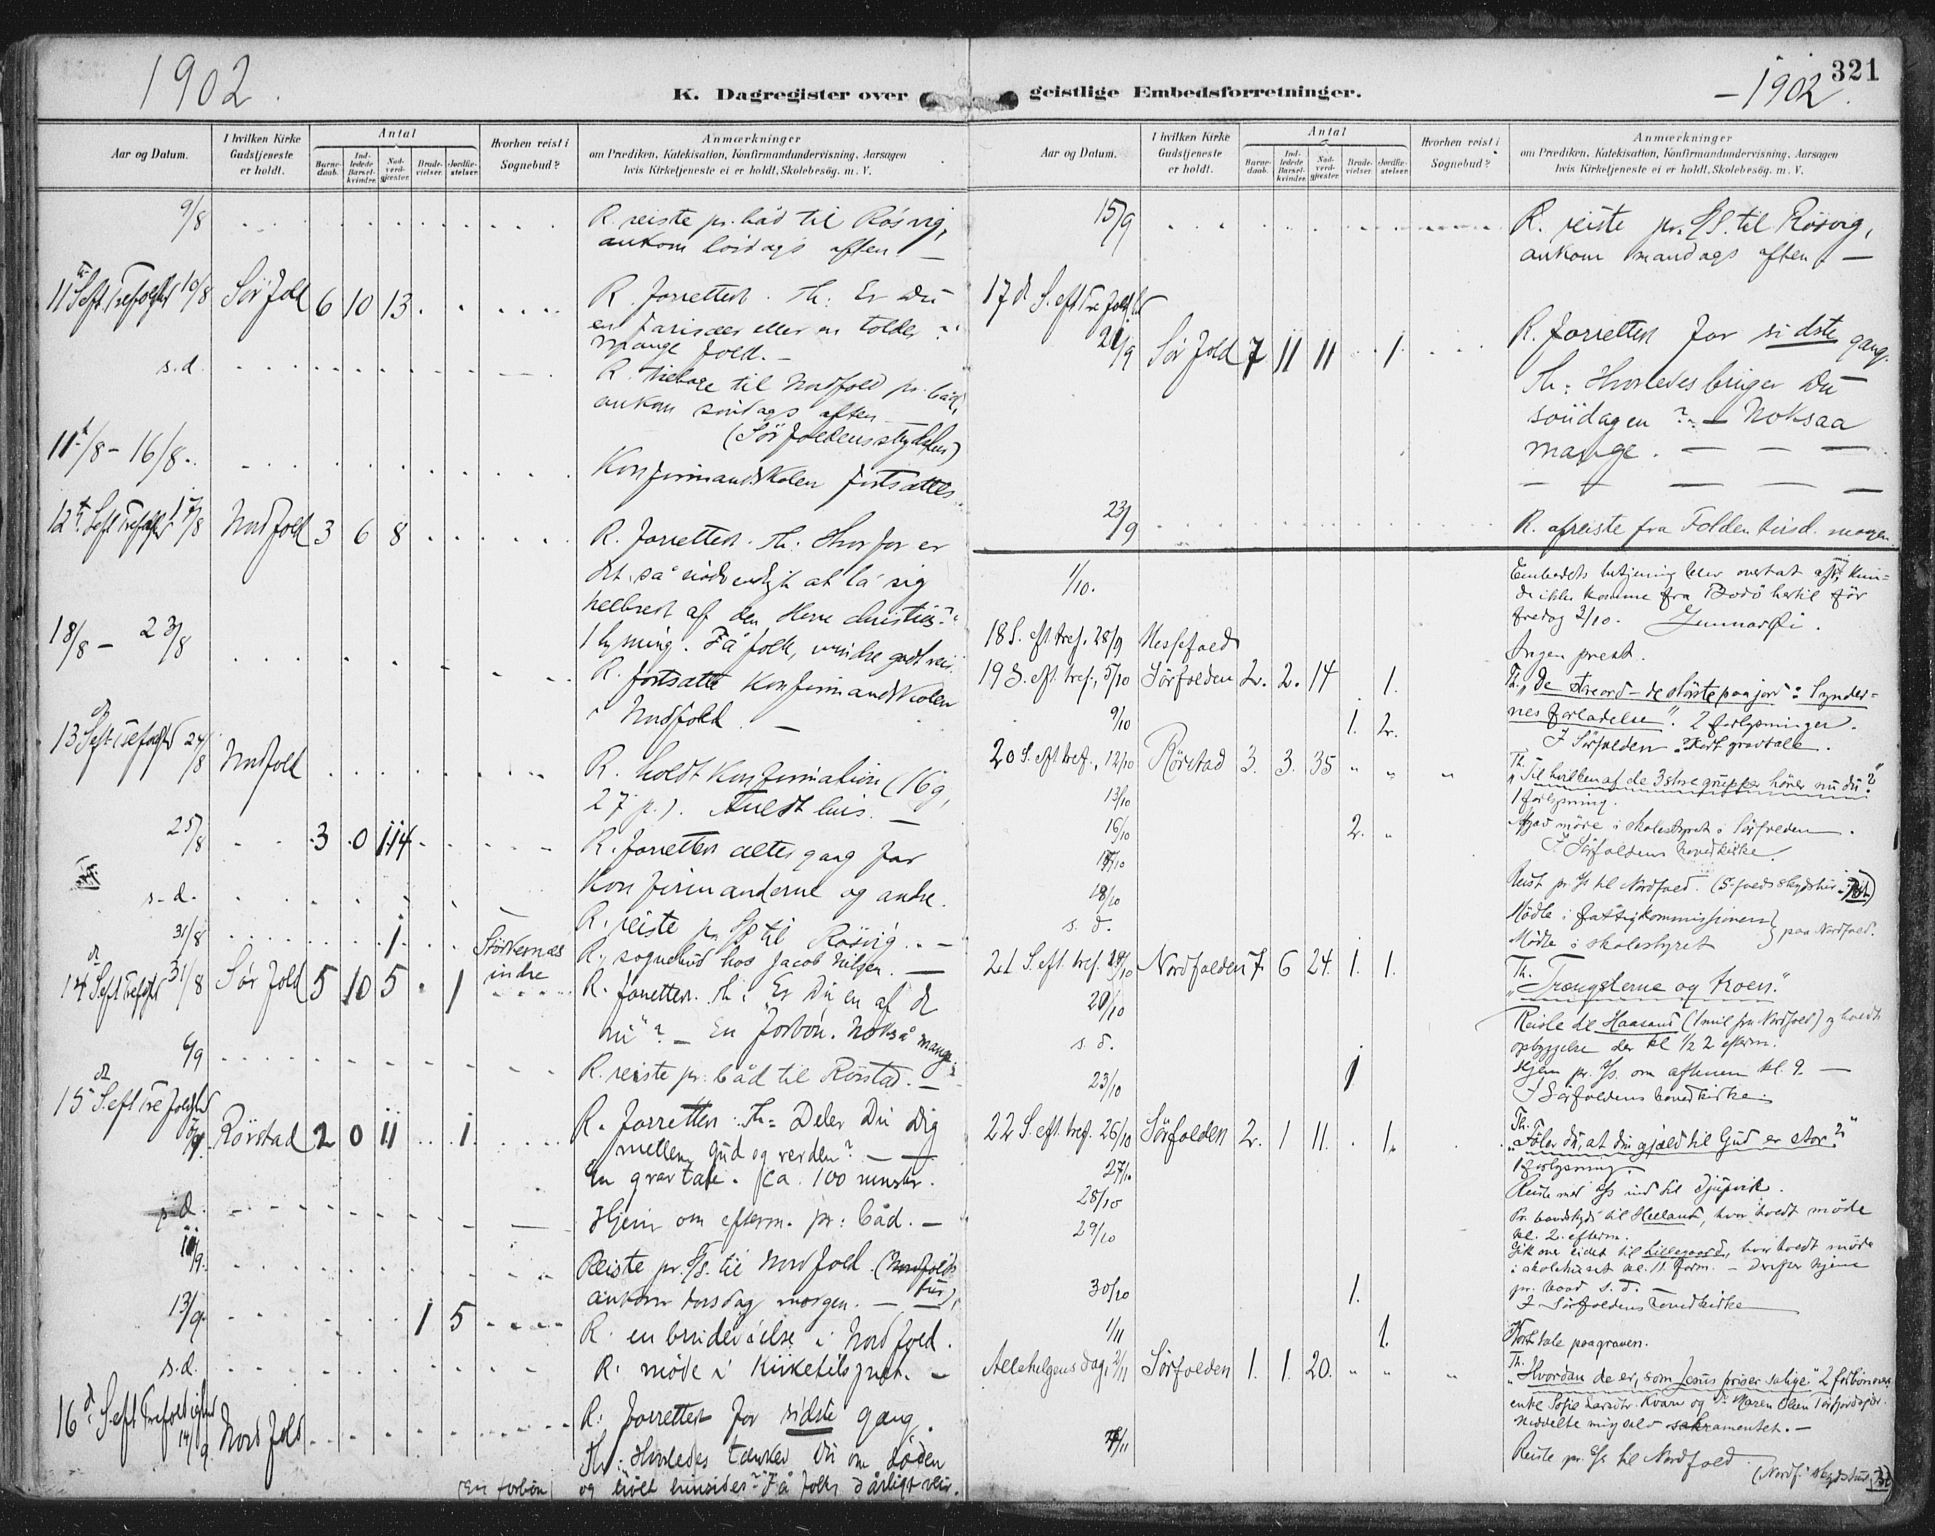 1902
K. Dagregister over
Aar og Datum.
I hvilken Kirke Gudstjeneste er holdt.
Antal
Barnedaab.
Indledede Barselkvinder.
Nadverdgjester.
Brudevielser.
Jordfæstelser.
Hvorhen reist i Sognebud?
Anmærkninger
om Prædiken, Katekisation, Konfirmandundervisning, Aarsagen
hvis Kirketjeneste ei er holdt, Skolebesøg. m. V.
9/8 R. reiste pr. båd til Røsvig,
ankom lördags aften —
11te S eft Trefoldghd 10/8 Sør Fold 6 10 13 R. forretter. Th: Er Du
en farisæer eller en tolder?
Mange folk. —
s.d. R. tilbage til Nordfold pr. båd,
ankom söndags aften
(Sørfoldens skydstur)
11/8 – 16/8. Konfirmandskolen fortsattes.
12te S. eft Trefoldghd 17/8 Nordfold 3 6 8 R. forretter. Th: Hvorfor er
det så nödvendigt at la sig
helbrede af den Herre Christus?
1 lysning. Få folk, mindre godt veir.
18/8 – 23/8 R. fortsatte Konfirmandskolen
i Nordfold. —
13de S eft Trefoldghd 24/8 Nordfold R. holdt Konfirmation (16 g,
27 p.). Fuldt hus. —
25/8 3 0 114 R. forretter altergang for
Konfirmanderne og andre.
s.d. R. reiste pr. S/S til Røsvig. —
31/8 1 Størkernæs indre R. sognebud hos Jacob Nilsen. —
14de S eft Trefoldghd 31/8 Sør Fold 5 10 5 1 R. forretter. Th: Er Du en af de
ni"? — En forbön. Nokså mange.
6/9 R. reiste pr. båd til Rörstad. —
15de S eft Trefoldghd 7/9 Rörstad 2 0 11 1 R. forretter. Th: Deler Du Dig
mellem Gud og verden? —
En gravtale. Ca. 100 mnskr.
s.d. Hjem om efterm. pr: båd. —
11/9 Reiste pr. S/S. til Nordfold. (Nordfolds tur),
ankom torsdag morgen. —
13/9 1 5 R. en brudevielse i Nordfold.
s.d. R: möde i Kirketilsynet. —
16de S eft Trefoldighed 14/9 Nordfold R: forretter for sidste gang.
Th: Hvorledes tænker Du om döden
(En forbön) og livet hinsides? Få folk, dårligt veir.
321
– 1902.
geistlige Embedsforretninger.
Aar og Datum.
I hvilken Kirke Gudstjeneste er holdt.
Antal
Barnedaab.
Indledede Barselkvinder.
Nadverdgjester.
Brudevielser.
Jordfæstelser.
Hvorhen reist i Sognebud?
Anmærkninger
om Prædiken, Katekisation, Konfirmandundervisning, Aarsagen
hvis Kirketjeneste ei er holdt, Skolebesøg. m. V.
15/9 R. reiste pr. S/S. til Røsvig,
ankom mandags aften. —
17de S. eft Trefoldghd
21/9 Sør Fold 7 11 11 1. R. forretter for sidste gang.
Th: Hvorledes bruger Du
söndagen? — Noksaa
mange. — — —
23/9 R. afreiste fra Folden tirsd. morgen.
1/10. Embedets betjening blev overtat af mig, kun-
de ikke komme fra Bodö hertil för
fredag 3/10. Gunnar Öi.
18 S. eft tref. 28/9 Nessefold Ingen prest.
19 S. eft. tref., 5/10 Sørfolden 2. 2. 14 1. Th. "De tre ord – de störste paa jord: Synder-
nes forladelse". 2 forlysninger.
9/10 1. 2. I Sörfolden. Kort gravtale.
20 S. eft tref., 12/10 Rørstad 3. 3. 35 " " " Th. "Til hvilken af de 3 store grupper hører nu du?"
1 forlysning.
13/10 möde i skolestyret i Sörfolden.
16/10 2. " I Sörfoldens hovedkirke.
17/10 Reist pr. S/S til Nordfold. (S-folds skydstur)
18/10 Mödte i fattigkommissionen
s. d. Mödte i skolestyret } paa Nordfold.
21 S. eft. tref. 19/10 Nordfolden 7. 6 24. 1. 1. Th. "Trængslerne og troen."
20/10 Reiste til Haasand (1 mil fra Nordfold) og holdt
opbyggelse der kl ½ 2 efterm.
s. d. Hjem pr. S/S. om aftenen kl. 9. —
23/10 1 I Sörfoldens hovedkirke.
22 S. eft. tref. 26/10 Sørfolden 2. 1 11. 1. Th. "Føler du, at din gjæld til Gud er stor?"
1 forlysning.
27/10 Reiste med S/S ind til Djupvik.
28/10 Pr. baadskyds til Helland, hvor holdt møde
kl. 2. efterm.
29/10 Gik over eidet til Lillegaard, hvor holdt möde
i skolehuset kl. 11 form. – Derefter hjem
pr. baad s. d. –
30/10 1. I Sörfoldens hovedkirke
1/11 1. Kort tale paa graven.
Allehelgensdag, 2/11 Sørfolden 1. 1. 20. " " " Th. "Hvordan de er, som Jesus priser salige" 2 forbönner
enke Sofie Kvarv og Maren Olsen
Meddelte mig selv sakramentet. –
7/11 Reiste pr. S/S til Nordfold
(Nordf. skydstur)